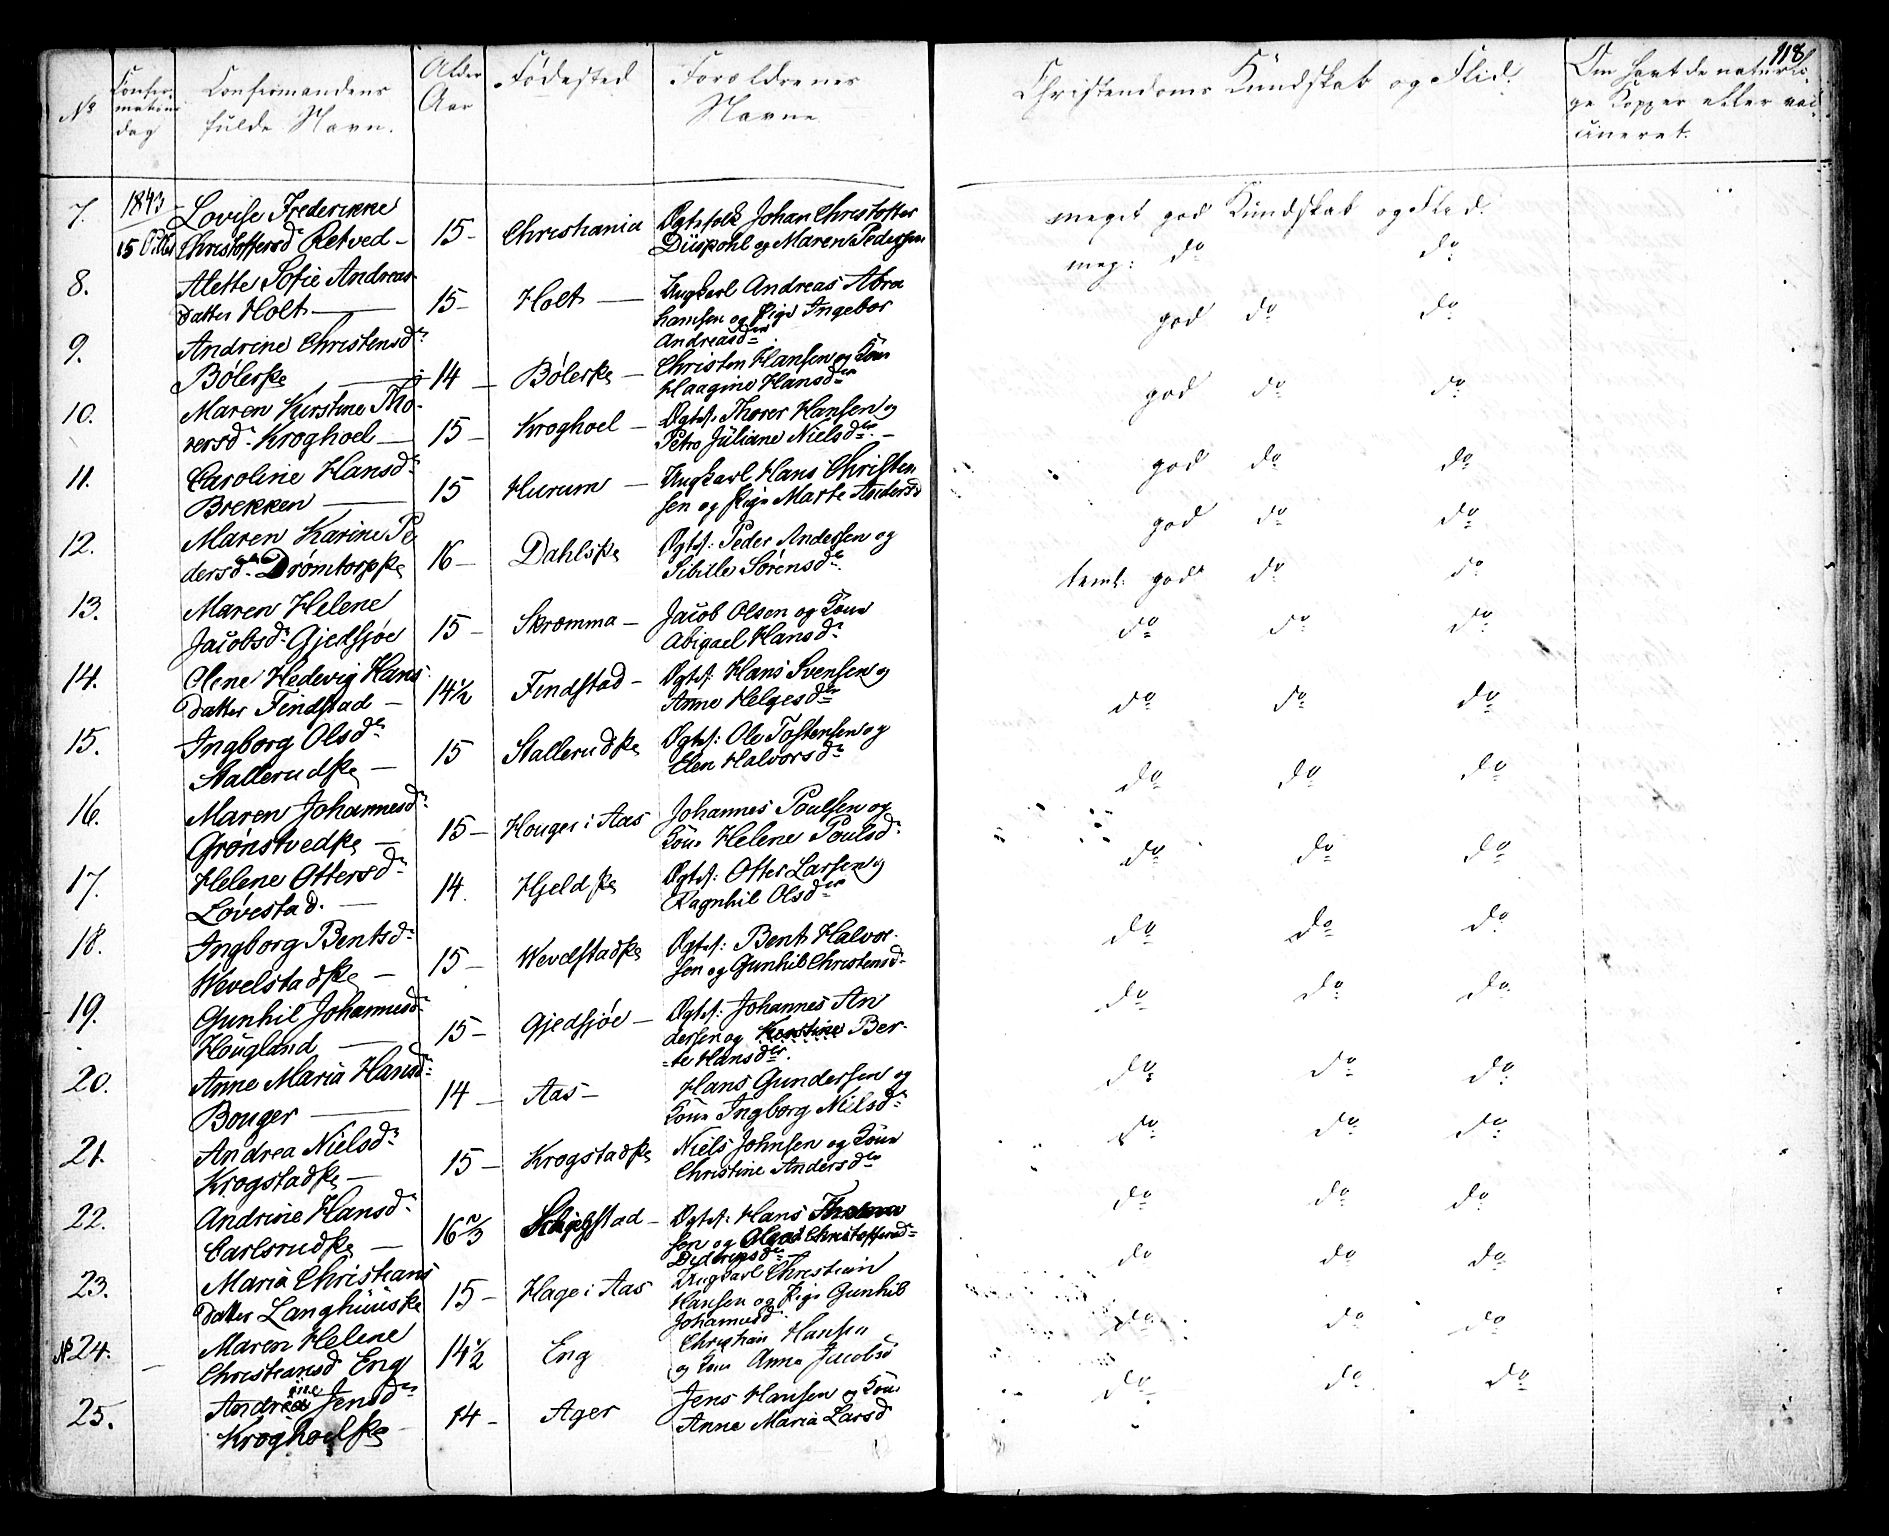 118
No
Confirmations dag
Confirmandens fulde Navn.
Alder Aar
Fødested
Forældrenes Navne
Christendoms Kundskab og Flid.
Om havt de naturlige Kopper eller vaccineret.
7. 1843 Lovise Frederikke
15 Octbr Christoffersdr Retved – 15 – Christiania Ægtefolk Johan Christoffer
Düspohl og Maren Pedersen
meget god Kundskab og Flid.
8. Alette Sofie Andreas
datter Holt – 15 – Holt – Ungkarl Andreas Abra
hamsen og Pige Ingebor
Andreasdr
meg: do do
9. Andrine Christensdr
Bølerske – 14 – Bølerske – Christen Hansen og Kone
Haagine Hansdr
god do do
10. Maren Kirstine Tho-
rersdr Kroghoel – 15 – Kroghoel – Ægtef. Thorer Hansen og
Petro Juliane Nielsdr –
god do do
11. Caroline Hansdr
Brekken – 15 Hurum – Ungkarl Hans Christen
sen og Pige Marte Andersd
god do do
12. Maren Karine Pe
dersdr Drømtorpske 16 – Dahlske Ægtef: Peder Andersen og
Sibille Sørensdr
god do do
13. Maren Helene
Jacobsdr Gjedsjøe 15 – Skromma – Jacob Olsen og Kone
Abigael Hansdr
teml: god do do
14. Olene Hedevig Hans
datter Findstad – 14½ Findstad – Ægtef: Hans Svensen og
Anne Helgesdr
do do do
15. Ingborg Olsdr
Stallerudske – 15 Stallerudske Ægtef: Ole Tostensen og
Elen Halvorsdr
do do do
16. Maren Johannesdr
Grønstvedske – 15 – Houger i Aas Johannes Poulsen og
Kone Helene Poulsdr
do do do
17. Helene Ottersdr
Løvestad. – 14. Hjeldske Ægtef: Otter Larsen og
Ragnhil Olsdr
do do do
18. Ingborg Bentsdr
Wevelstadske – 15 – Wevelstadske Ægtef: Bent Halvor-
sen og Gunhil Christensd
do do do
19. Gunhil Johannesd
Hougland – 15 – Gjedsjøe – Ægtef: Johannes An
dersen og Kerstine Ber-
te Hansdr.
do do do
20. Anne Maria Hansd
Bonger – 14 – Aas – Hans Gundersen og
Kone Ingborg Nielsdr
do do do
21. Andrea Nielsdr
Krogstadske – 15 – Krogstadske Niels Johnsen og Kone
Christine Andersdr
do do do
22. Andrine Hansdr
Carlsrudske – 16⅔ Ægtef: Hans
sen og Christoffersd
Dideriksdr
do do do
23. Maria Christians
datter Langhuuske 15 – Hage i Aas Ungkarl Christian
Hansen og Pige Gunhil
Johannesd
do do do
N 24. Maren Helene
Christiansd Eng 14½ Eng Christian Hansen
og Kone Anne Jacobsd
do do do
25. Andrine Jensdr
Kroghoelske 14 – Ager Jens Hansen og Kone
Anne Maria Larsd
do do do